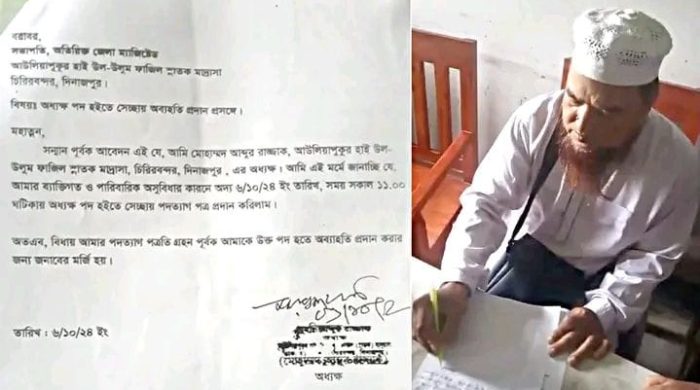 বরাবর,
সভাপতি, অতিরিক্ত জেলা ম্যাজিষ্ট্রেড
আউলিয়াপুকুর হাই উল-উলুম ফাজিল স্নাতক মাদ্রাসা
চিরিরবন্দর, দিনাজপুর।
বিষয়ঃ অধ্যক্ষ পদ হইতে সেচ্ছায় অব্যহতি প্রদান প্রসঙ্গে।
মহাত্নন,
সন্মান পূর্বক আবেদন এই যে, আমি মোহাম্মদ আব্দুর রাজ্জাক, আউলিয়াপুকুর হাই উল-
উলুম ফাজিল স্নাতক মাদ্রাসা, চিরিরবন্দর, দিনাজপুর , এর অধ্যক্ষ। আমি এই মর্মে জানাচ্ছি যে,
আমার ব্যাক্তিগত ও পারিবারিক অসুবিধার কারনে অদ্য ৬/১০/২৪ ইং তারিখ, সময় সকাল ১১.০০
ঘটিকায় অধ্যক্ষ পদ হইতে সেচ্ছায় পদত্যাগ পত্র প্রদান করিলাম।
অতএব, বিধায় আমার পদত্যাগ পত্রটি গ্রহন পূর্বক আমাকে উক্ত পদ হতে অব্যাহতি প্রদান করার
জন্য জনাবের মর্জি হয়।
তারিখ : ৬/১০/২৪ ইং
অধ্যক্ষ